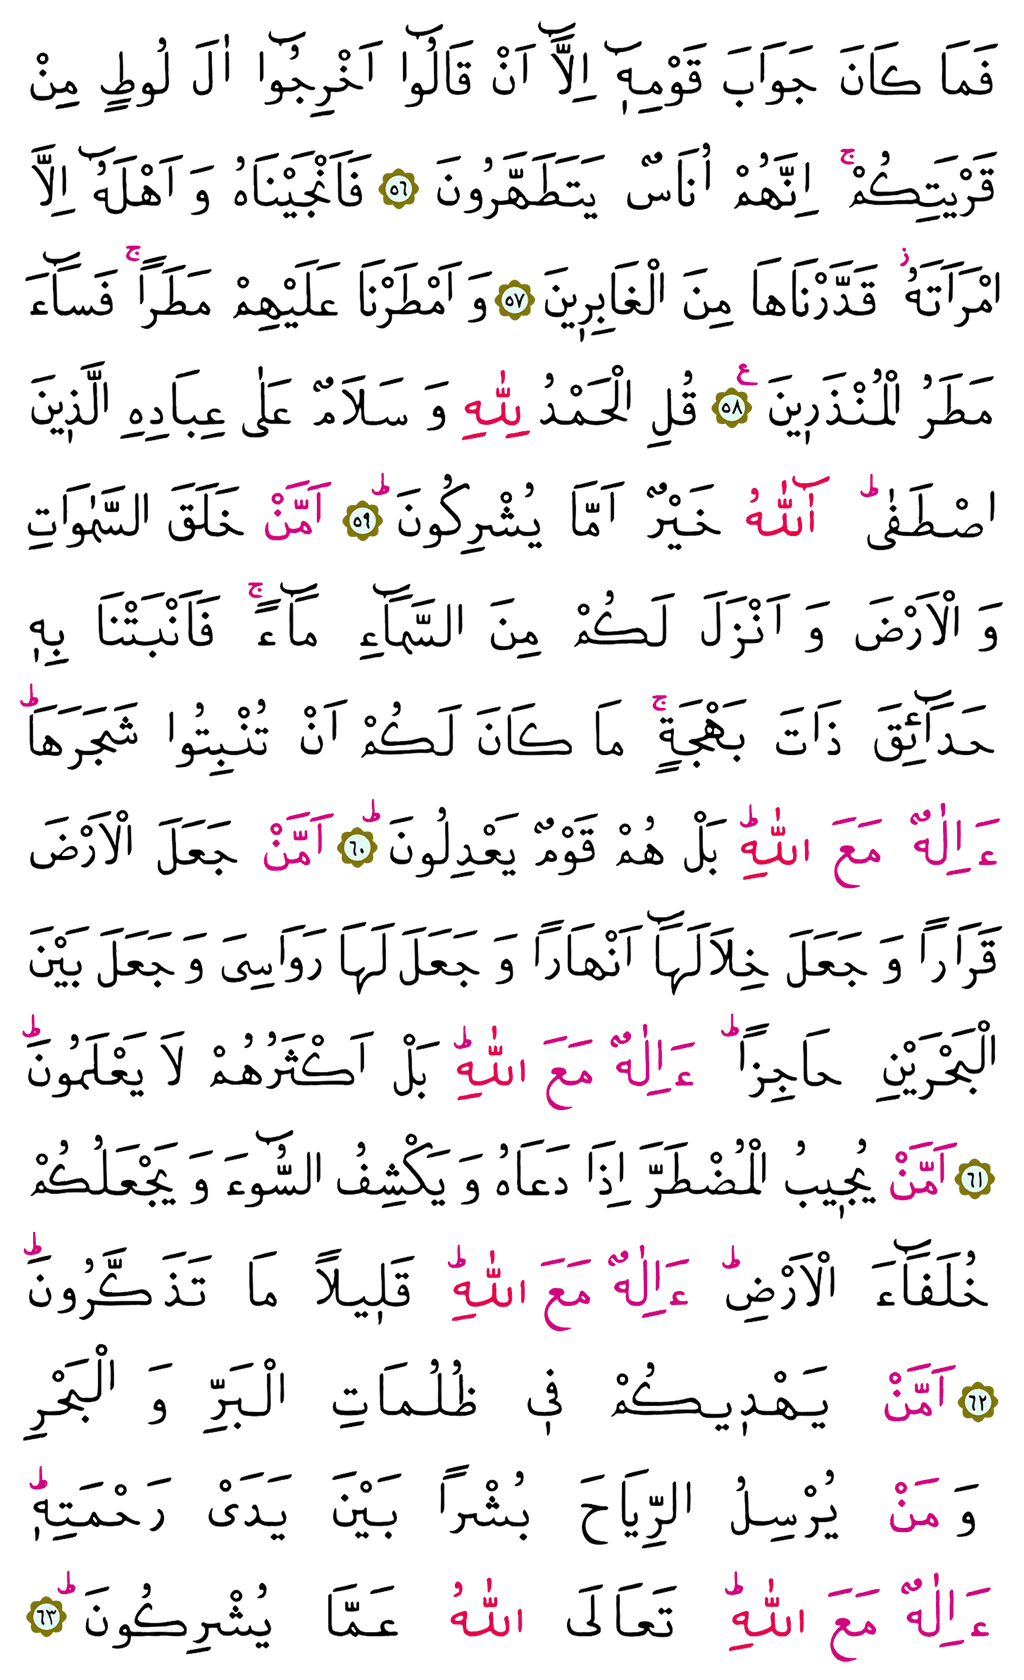 فَمَا كَانَ جَوَابَ قَوْمِهٖٓ اِلَّٓا اَنْ قَالُٓوا اَخْرِجُٓوا اٰلَ لُوطٍ مِنْ
قَرْيَتِكُمْۚ اِنَّهُمْ اُنَاسٌ يَتَطَهَّرُونَ ﴿٥٦﴾ فَاَنْجَيْنَاهُ وَ اَهْلَهُٓ اِلَّا
امْرَاَتَهُۘ قَدَّرْنَاهَا مِنَ الْغَابِرٖينَ ﴿٥٧﴾ وَ اَمْطَرْنَا عَلَيْهِمْ مَطَرًاۚ فَسَٓاءَ
مَطَرُ الْمُنْذَرٖينَ ع ﴿٥٨﴾ قُلِ الْحَمْدُ لِلّٰهِ وَ سَلَامٌ عَلٰى عِبَادِهِ الَّذٖينَ
اصْطَفٰىؕ آٰللّٰهُ خَيْرٌ اَمَّا يُشْرِكُونَؕ ﴿٥٩﴾ اَمَّنْ خَلَقَ السَّمٰوَاتِ
وَ الْاَرْضَ وَ اَنْزَلَ لَكُمْ مِنَ السَّمَٓاءِ مَٓاءًۚ فَاَنْبَتْنَا بِهٖ
حَدَٓائِقَ ذَاتَ بَهْجَةٍۚ مَا كَانَ لَكُمْ اَنْ تُنْبِتُوا شَجَرَهَاؕ
ءَاِلٰهٌ مَعَ اللّٰهِؕ بَلْ هُمْ قَوْمٌ يَعْدِلُونَؕ ﴿٦٠﴾ اَمَّنْ جَعَلَ الْاَرْضَ
قَرَارًا وَ جَعَلَ خِلَالَهَٓا اَنْهَارًا وَ جَعَلَ لَهَا رَوَاسِىَ وَ جَعَلَ بَيْنَ
الْبَحْرَيْنِ حَاجِزًاؕ ءَاِلٰهٌ مَعَ اللّٰهِؕ بَلْ اَكْثَرُهُمْ لَا يَعْلَمُونَؕ
﴿٦١﴾ اَمَّنْ يُجٖيبُ الْمُضْطَرَّ اِذَا دَعَاهُ وَ يَكْشِفُ السُّٓوءَ وَ يَجْعَلُكُمْ
خُلَفَٓاءَ الْاَرْضِؕ ءَاِلٰهٌ مَعَ اللّٰهِؕ قَلٖيلًا مَا تَذَكَّرُونَؕ
﴿٦٢﴾ اَمَّنْ يَهْدٖيكُمْ فٖى ظُلُمَاتِ الْبَرِّ وَ الْبَحْرِ
وَ مَنْ يُرْسِلُ الرِّيَاحَ بُشْرًا بَيْنَ يَدَىْ رَحْمَتِهٖؕ
ءَاِلٰهٌ مَعَ اللّٰهِؕ تَعَالَى اللّٰهُ عَمَّا يُشْرِكُونَؕ ﴿٦٣﴾